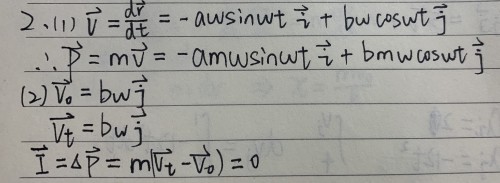 2、(1) v⃗ = dr⃗/dt = -aωsinωt i⃗ + bωcosωt j⃗
∴ P⃗ = mv⃗ = -amωsinωt i⃗ + bmωcosωt j⃗
(2) v⃗₀ = bω j⃗
v⃗t = bω j⃗
I⃗ = ΔP⃗ = m(v⃗t - v⃗₀) = 0